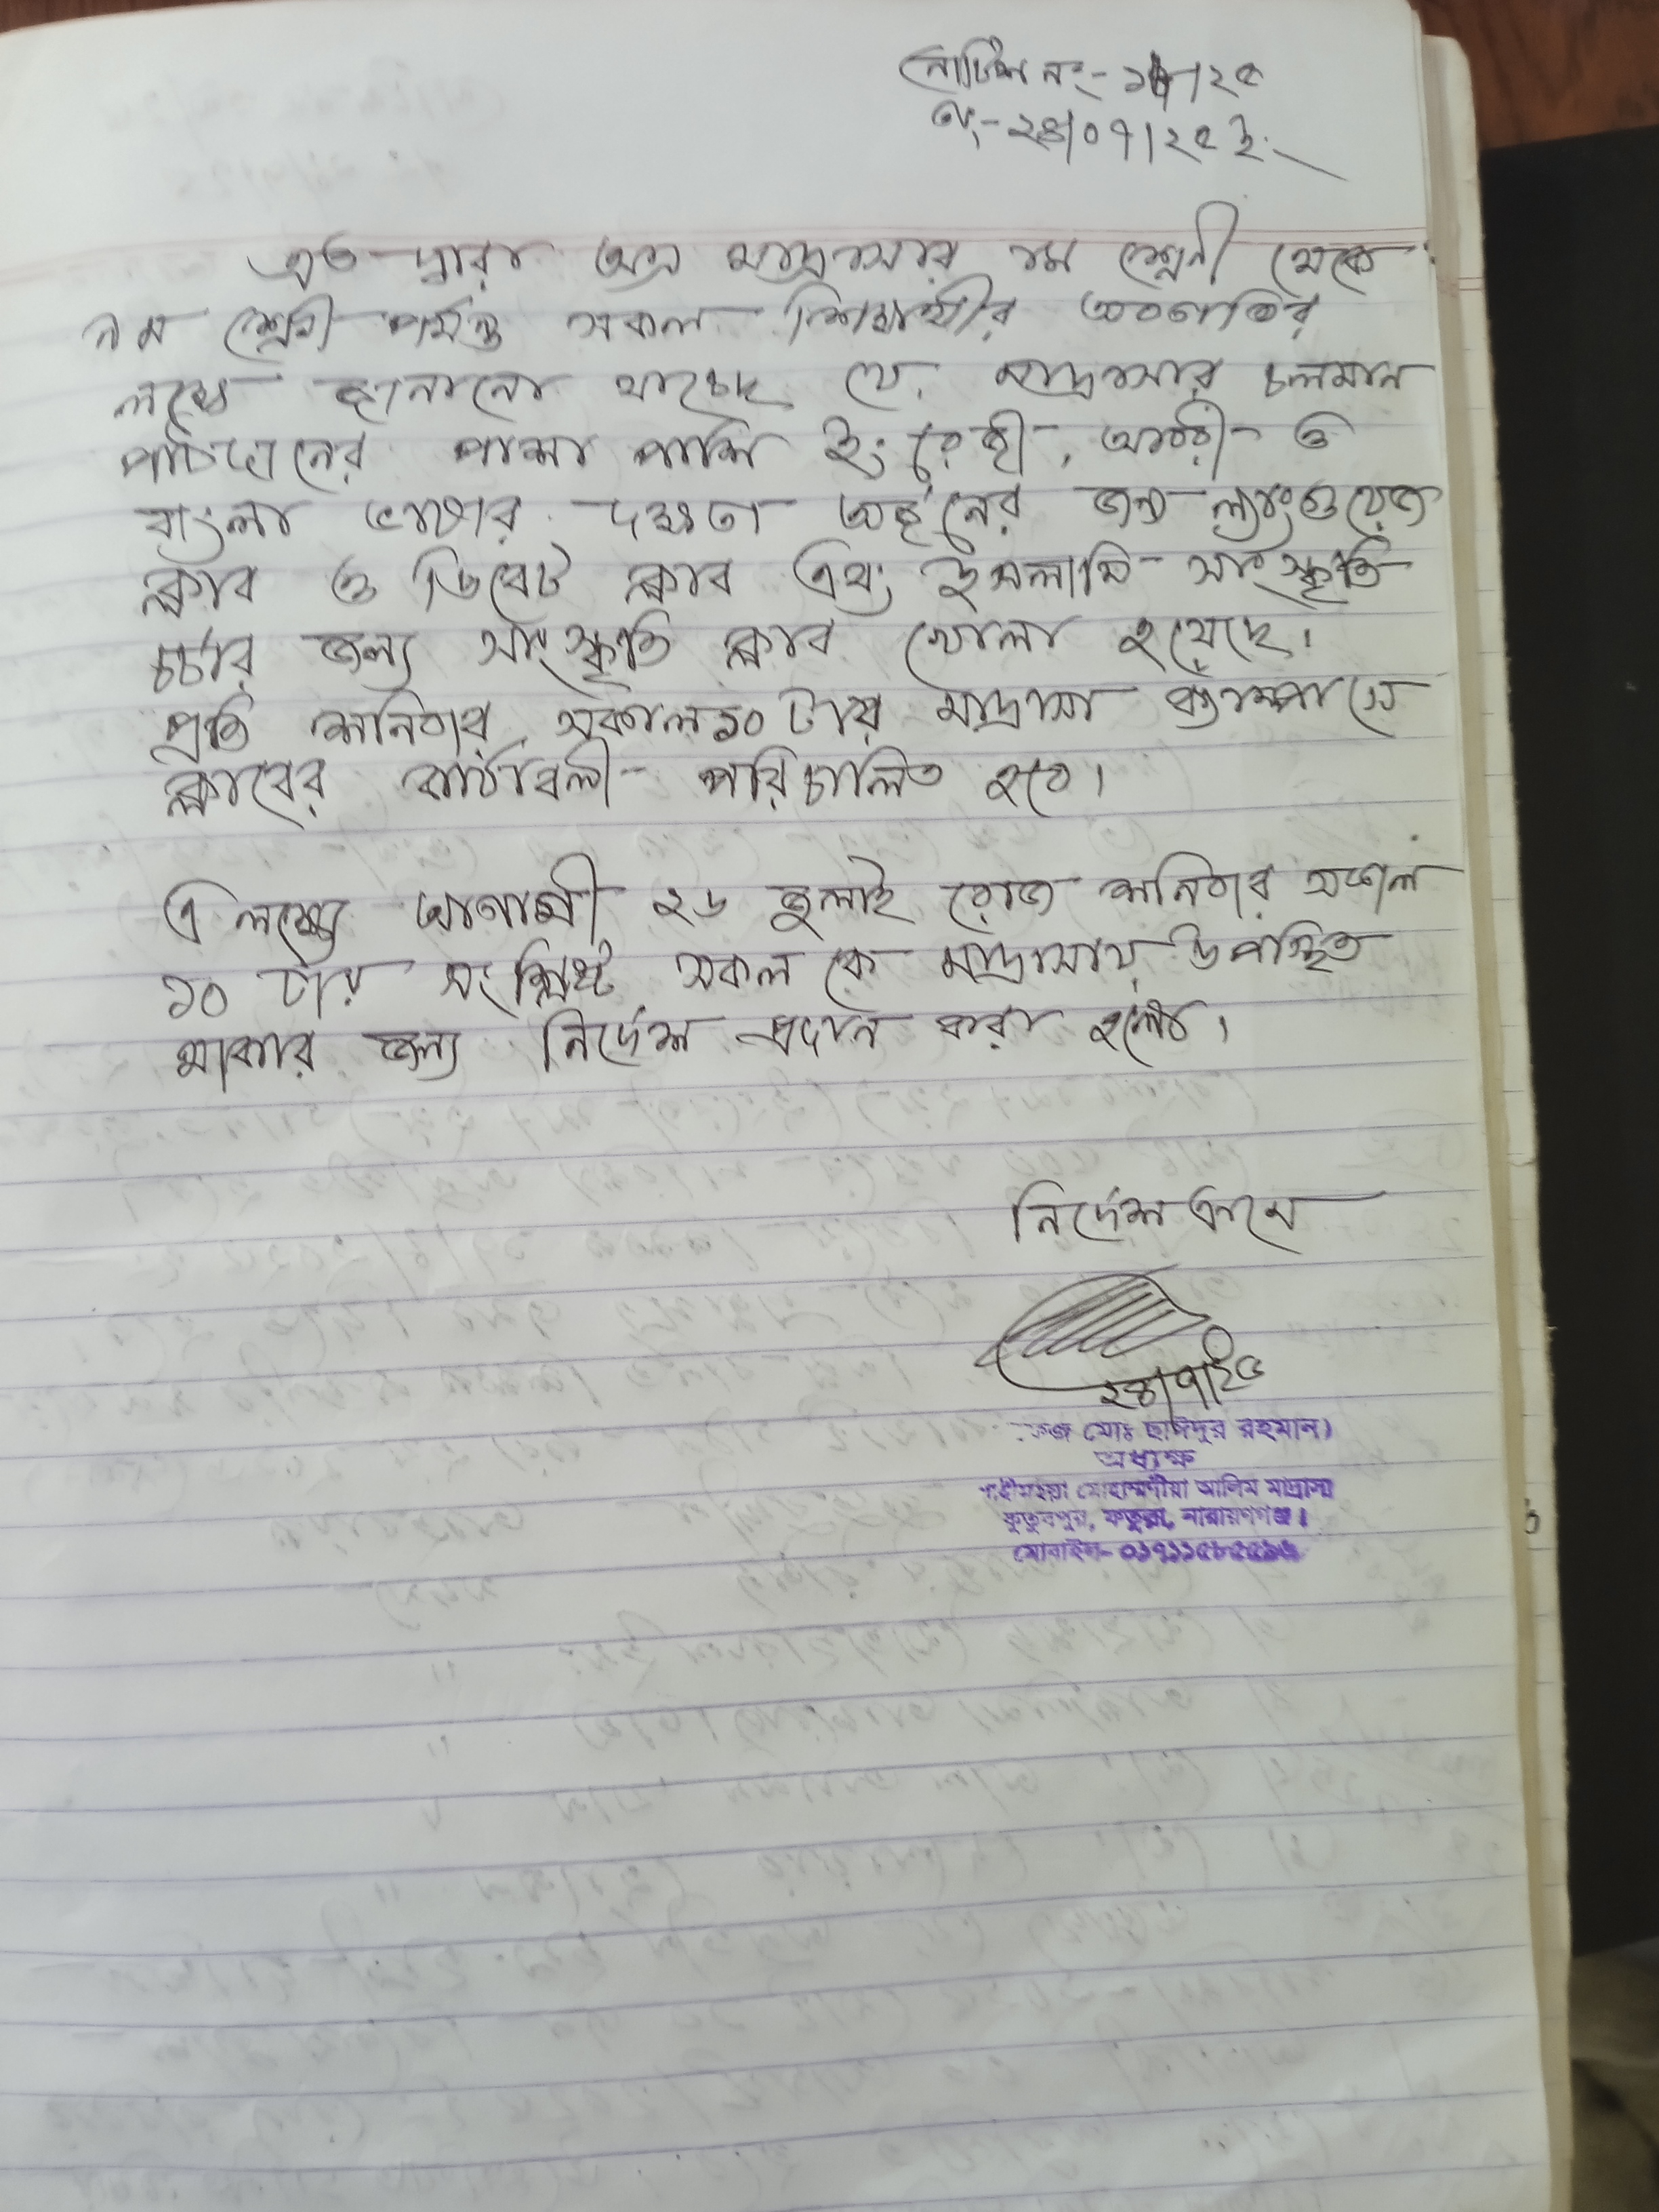 নোটিশ নং- /২৫
তাং- ২৪/০৭/২৫ ইং
এত দ্বারা অত্র মাদ্রাসার ৭ম শ্রেণী থেকে
৯ম শ্রেণী পর্যন্ত সকল শিক্ষার্থীর অবগতির
লক্ষ্যে জানানো যাচ্ছে যে, মাদ্রাসার চলমান
পাঠদানের পাশা পাশি ইংরেজী, আরবী ও
বাংলা ভাষার দক্ষতা অর্জনের জন্য ল্যাংগুয়েজ
ক্লাব ও ডিবেট ক্লাব এবং ইসলামি সাংস্কৃতি
চর্চার জন্য সাংস্কৃতি ক্লাব খোলা হয়েছে।
প্রতি শনিবার সকাল ১০ টায় মাদ্রাসা ক্যাম্পাসে
ক্লাবের কার্যাবলী পরিচালিত হবে।
এ লক্ষ্যে আগামী ২৬ জুলাই রোজ শনিবার সকাল
১০ টায় সংশ্লিষ্ট সকল কে মাদ্রাসায় উপস্থিত
থাকার জন্য নির্দেশ প্রদান করা হলো।
নির্দেশ ক্রমে
২৪/৭/২৫
মোঃ ছাঈদুর রহমান)
অধ্যক্ষ
মোহাম্মদীয়া আলিম মাদ্রাসা
কুতুবপুর, ফতুল্লা, নারায়ণগঞ্জ।
মোবাইল-